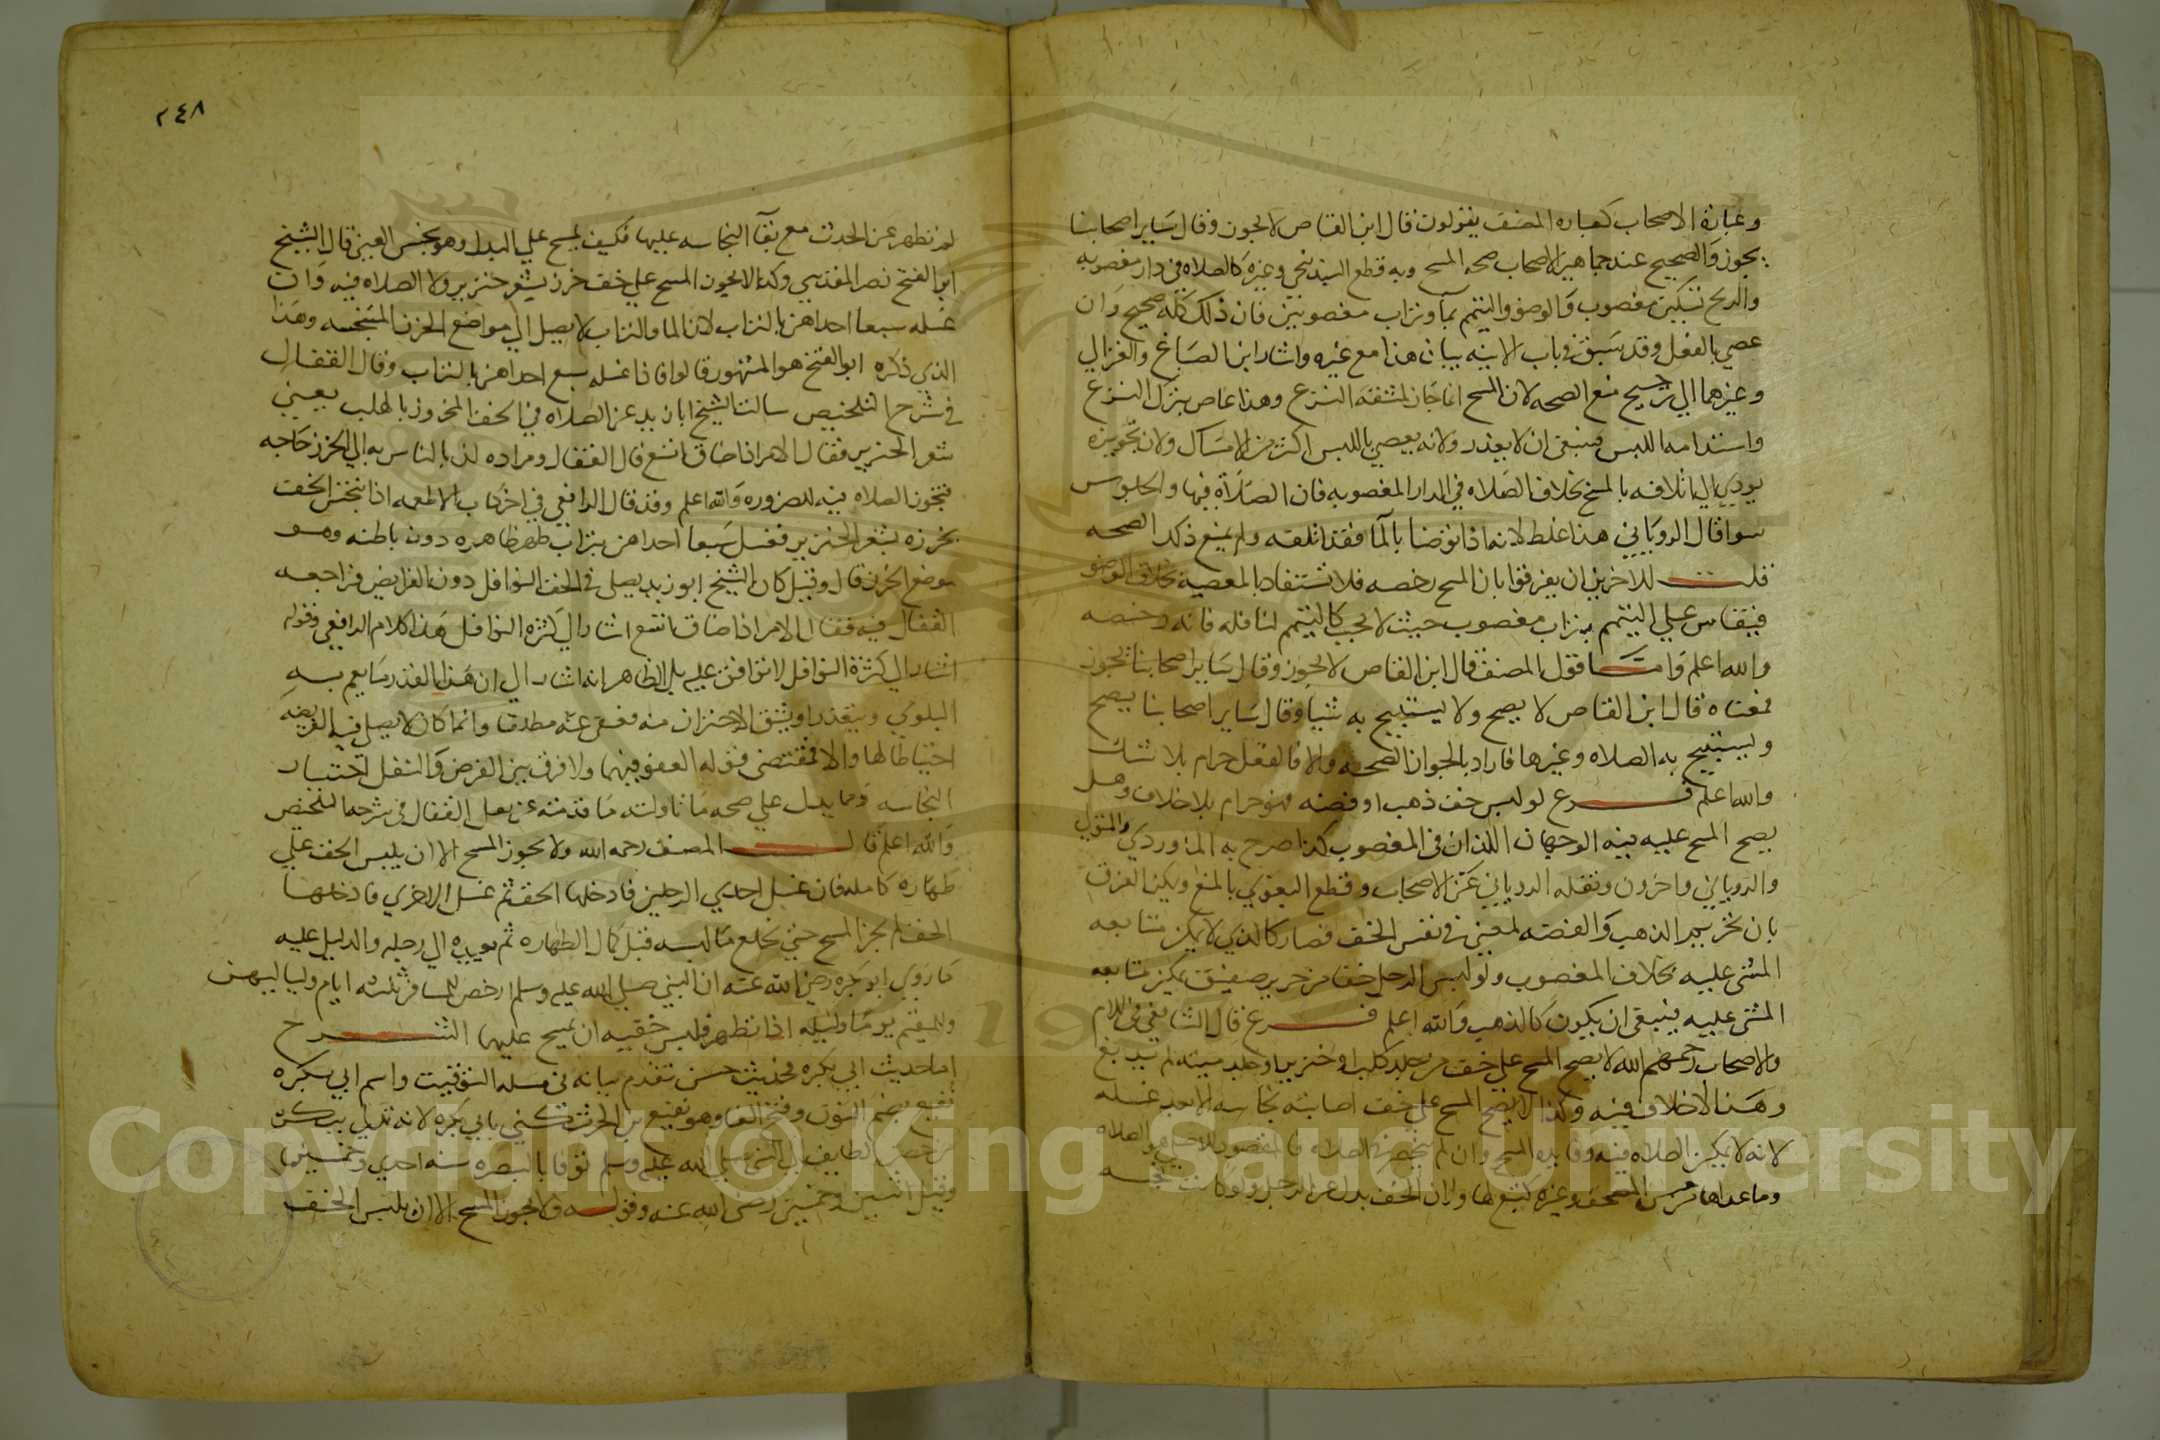 وعبارة الاصحاب كعباره المصنف يقولون قال ابن القاص لا يجوز وقال ساير اصحابنا
يجوز والصحيح عند جماهير الاصحاب صحه المسح وبه قطع البندنيجي وغيره كالصلاه في دار مغصوبه
والذبح بسكين مغصوب والوضو والتيمم بما وتراب مغصوبين فان ذلك كله صحيح وان
عصي بالفعل وقد سبق في باب الانيه بيان هذا مع غيره واشار ابن الصباغ والغزالي
وغيرهما الي ترجيح منع الصحه لان المسح انما جاز لمشقه النزع وهذا عاص بترك النزع
واستدامه اللبس فينبغي ان لا يعذر ولانه يعصي باللبس اكثر من الامساك ولان تجويزه
يودي الي اتلافه بالمسح بخلاف الصلاه في الدار المغصوبه فان الصلاة فيها والجلوس
سوا قال الروياني هذا غلط لانه اذا توضا بالما فقد اتلفه ولم يمنع ذلك الصحه
قلت للاخرين ان يفرقوا بان المسح رخصه فلا تستفاد بالمعصية بخلاف الوضو
فيقاس علي التيمم بتراب مغصوب حيث لا يجب كالتيمم لنافله فانه رخصه
والله اعلم واما قول المصنف قال ابن القاص لا يجوز وقال ساير اصحابنا يجوز
فمعناه قال ابن القاص لا يصح ولا يستبيح به شيا وقال ساير اصحابنا يصح
ويستبيح به الصلاه وغيرها فاراد بالجواز الصحه والا فالفعل حرام بلا شك
والله اعلم فرع لو لبس خف ذهب او فضه فهو حرام بلا خلاف وهل
يصح المسح عليه فيه الوجهان اللذان في المغصوب كذا صرح به الماوردي والمتولي
والروياني واخرون ونقله الروياني عن الاصحاب وقطع البغوي بالمنع ويمكن الفرق
بان تحريم الذهب والفضه لمعين في نفس الخف فصار كالذي لا يمكن متابعه
المشي عليه بخلاف المغصوب ولو لبس الرجل خفا من حرير صفيق يمكن متابعه
المشي عليه فينبغي ان يكون كالذهب والله اعلم فرع قال الشافعي في الام
والاصحاب رحمهم الله لا يصح المسح علي خف من جلد كلب او خنزير او جلد ميته لم يدبغ
وهذا لا خلاف فيه وكذا لا يصح المسح علي خف اصابته نجاسه الا بعد غسله
لانه لا يمكن الصلاه فيه وفايده المسح وان لم تنحصر في الصلاه فالمقصود الاصلي هو الصلاه
وما عداها من مس المصحف وغيره كالتبع لها ولان الخف بدل عن الرجل ولو كانت نجسه
٢٤٨
لم تطهر عن الحدث مع بقآ النجاسه عليها فكيف يمسح علي البدل وهو نجس العين قال الشيخ
ابو الفتح نصر المقدسي وكذا لا يجوز المسح علي خف خرز بشعر خنزير ولا الصلاه فيه وان
غسله سبعا احداهن بالتراب لان الما والتراب لا يصل الي مواضع الخرز المتنجسه وهذا
الذي ذكره ابو الفتح هو المشهور قالوا فاذا غسله سبع احداهن بالتراب وقال القفال
في شرح التلخيص سالت الشيخ ابا زيد عن الصلاه في الخف المخروز بالهلب يعني
شعر الخنزير فقال الامر اذا ضاق اتسع قال القفال ومراده لان بالناس به الي الخرز حاجه
فتجوز الصلاه فيه للضروره والله اعلم وقد قال الرافعي في اخر كتاب الاطعمه اذا تنجس الخف
بخرزه بشعر الخنزير فغسل سبعا احداهن بتراب طهر ظاهره دون باطنه وهو
موضع الخرز قال وقيل كان الشيخ ابو زيد يصلي في الخف النوافل دون الفرايض فراجعه
القفال فيه فقال الامر اذا ضاق اتسع اشار الي كثره النوافل هذا كلام الرافعي وقوله
اشار الي كثرة النوافل لا نوافق عليه بل الظاهر انه اشار الي ان هذا القدر مما يعم به
البلوي ويتعذر او يشق الاحتراز منه فعفي عنه مطلقا وانما كان لا يصلي فيه الفريضه
احتياطا لها والا فمقتضي قوله العفو فيهما ولا فرق بين الفرض والنفل في اجتناب
النجاسه ومما يدل علي صحه ما تاولته ما قدمته عن نقل القفال في شرحه التلخيص
والله اعلم قال المصنف رحمه الله ولا يجوز المسح الا ان يلبس الخف علي
طهاره كامله فان غسل احدي الرجلين فادخلها الخف ثم غسل الاخري فادخلها
الخف لم يجز المسح حتي يخلع ما لبسه قبل كمال الطهاره ثم يعيده الي رجله والدليل عليه
ما روي ابو بكره رضي الله عنه ان النبي صلي الله عليه وسلم ارخص للمسافر ثلثه ايام ولياليهن
وللمقيم يوما وليله اذا تطهر فلبس خفيه ان يمسح عليهما الشرح
اما حديث ابي بكره فحديث حسن تقدم بيانه في مسله التوقيت واسم ابي بكره
نفيع بضم النون وفتح الفا وهو نفيع بن الحرث كني بابي بكره لانه تدلي ببكره
من حصن الطايف الي النبي صلي الله عليه وسلم توفي بالبصره سنه احدي وخمسين
وقيل اثنين وخمسين رضي الله عنه وقوله ولا يجوز المسح الا ان يلبس الخف
Copyright © King Saud University